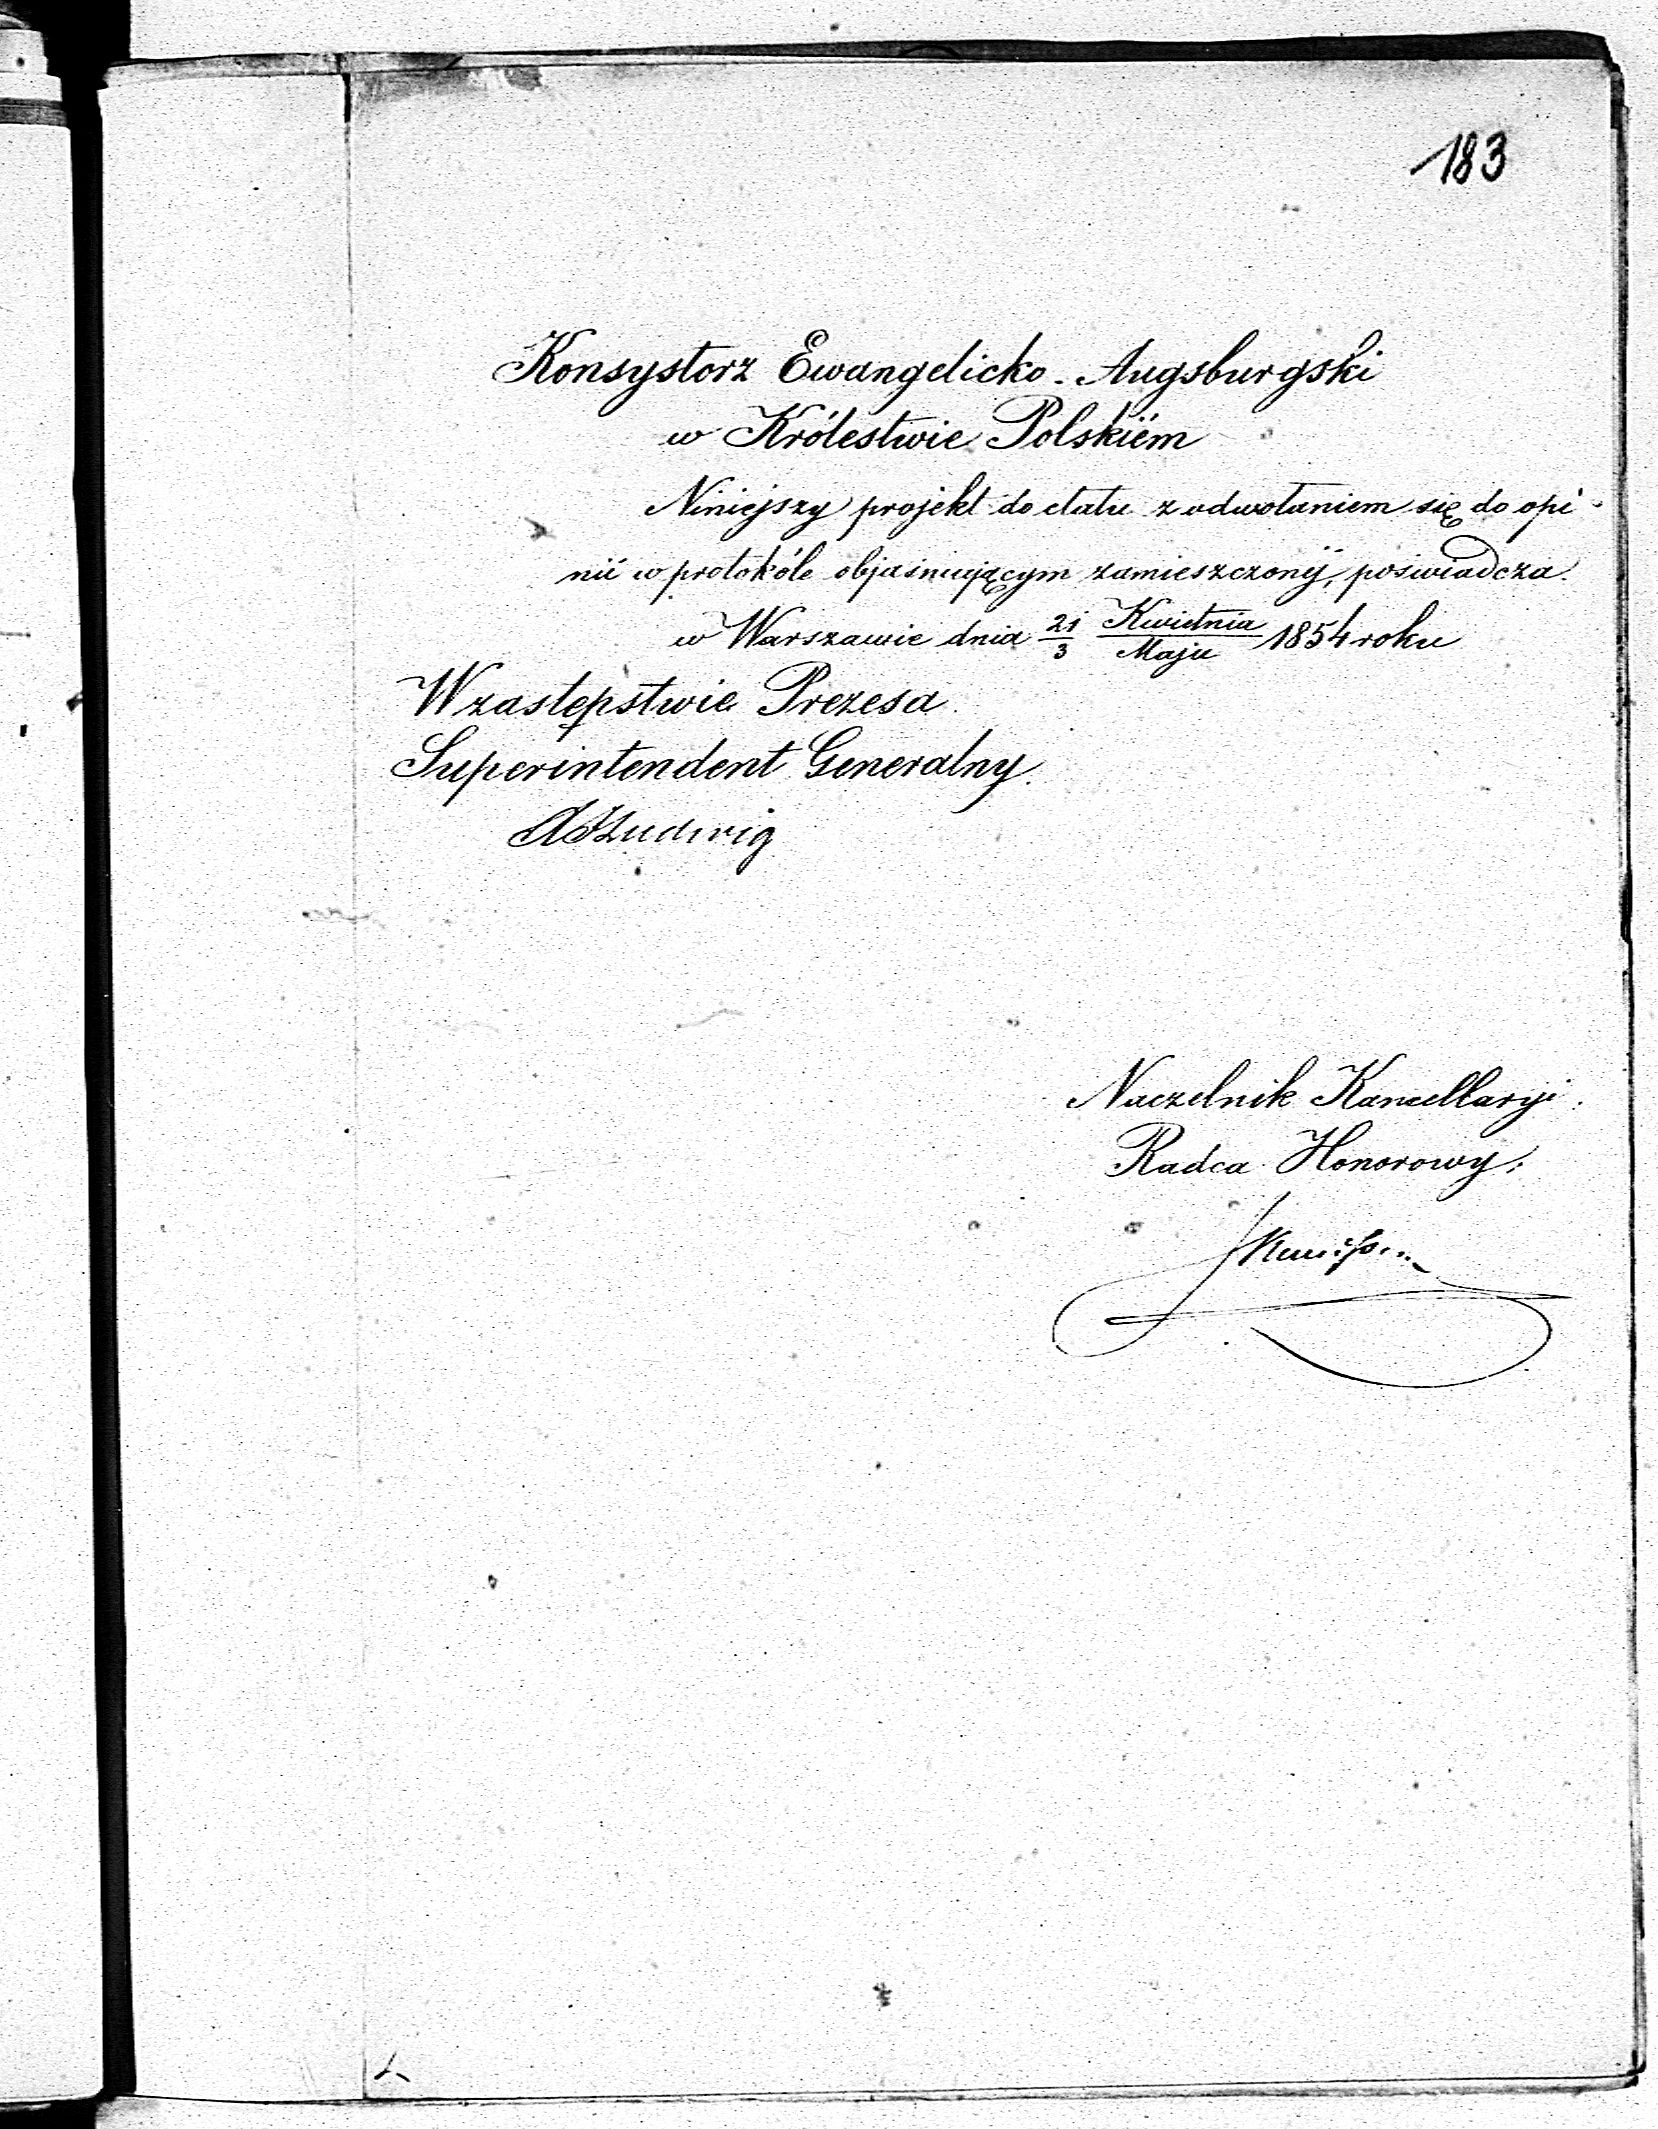 183
Konsystorz Ewangelicko-Augsburgski
w Królestwie Polskiém
Niniejszy projekt do etatu z odwołaniem się do opi-
nii w protokóle objaśniającym zamieszczonÿ, poświadcza.
w Warszawie dnia 21/3 Kwietnia/Maja 1854 roku
W zastępstwie Prezesa.
Superintendent Generalny.
Ludwig
Naczelnik Kancellaryi.
Radca Honorowy.